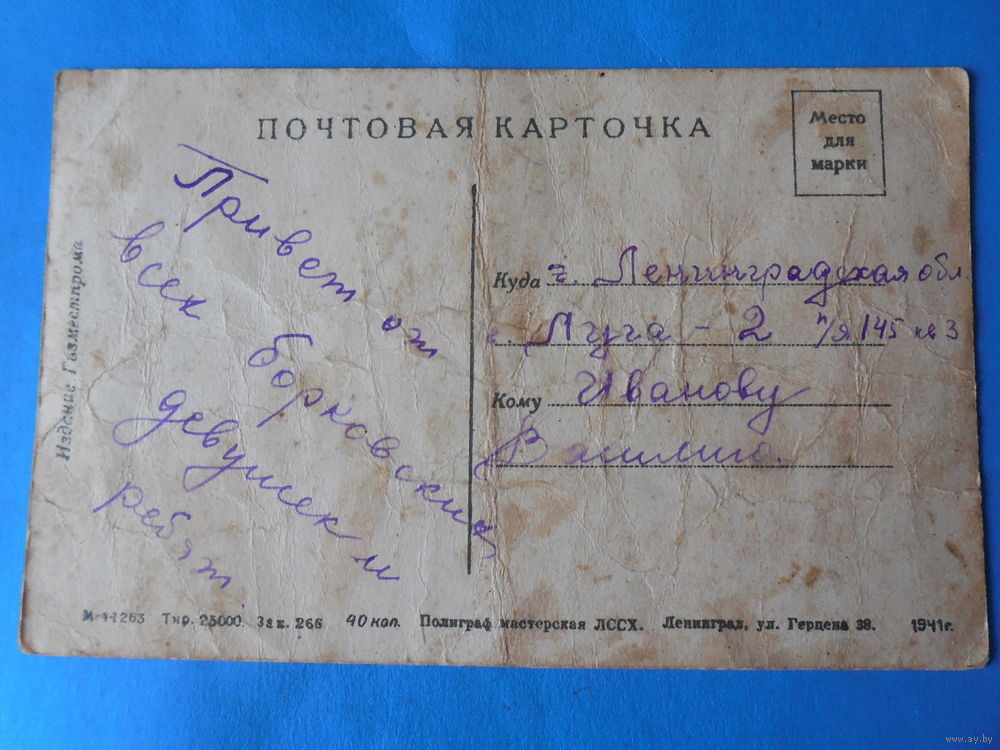 ПОЧТОВАЯ КАРТОЧКА
Место
для
марки
Издание Газместпрома
Привет от
всех борковских
девушек и
ребят
Куда г. Ленинградская обл
г. Луга - 2 п/я 145 кв 3
Кому Иванову
Василию.
М-44263 Тир. 25000. Зак. 266 40 коп. Полиграф мастерская ЛССХ. Ленинград, ул. Герцена 38. 1941 г.
www.ay.by